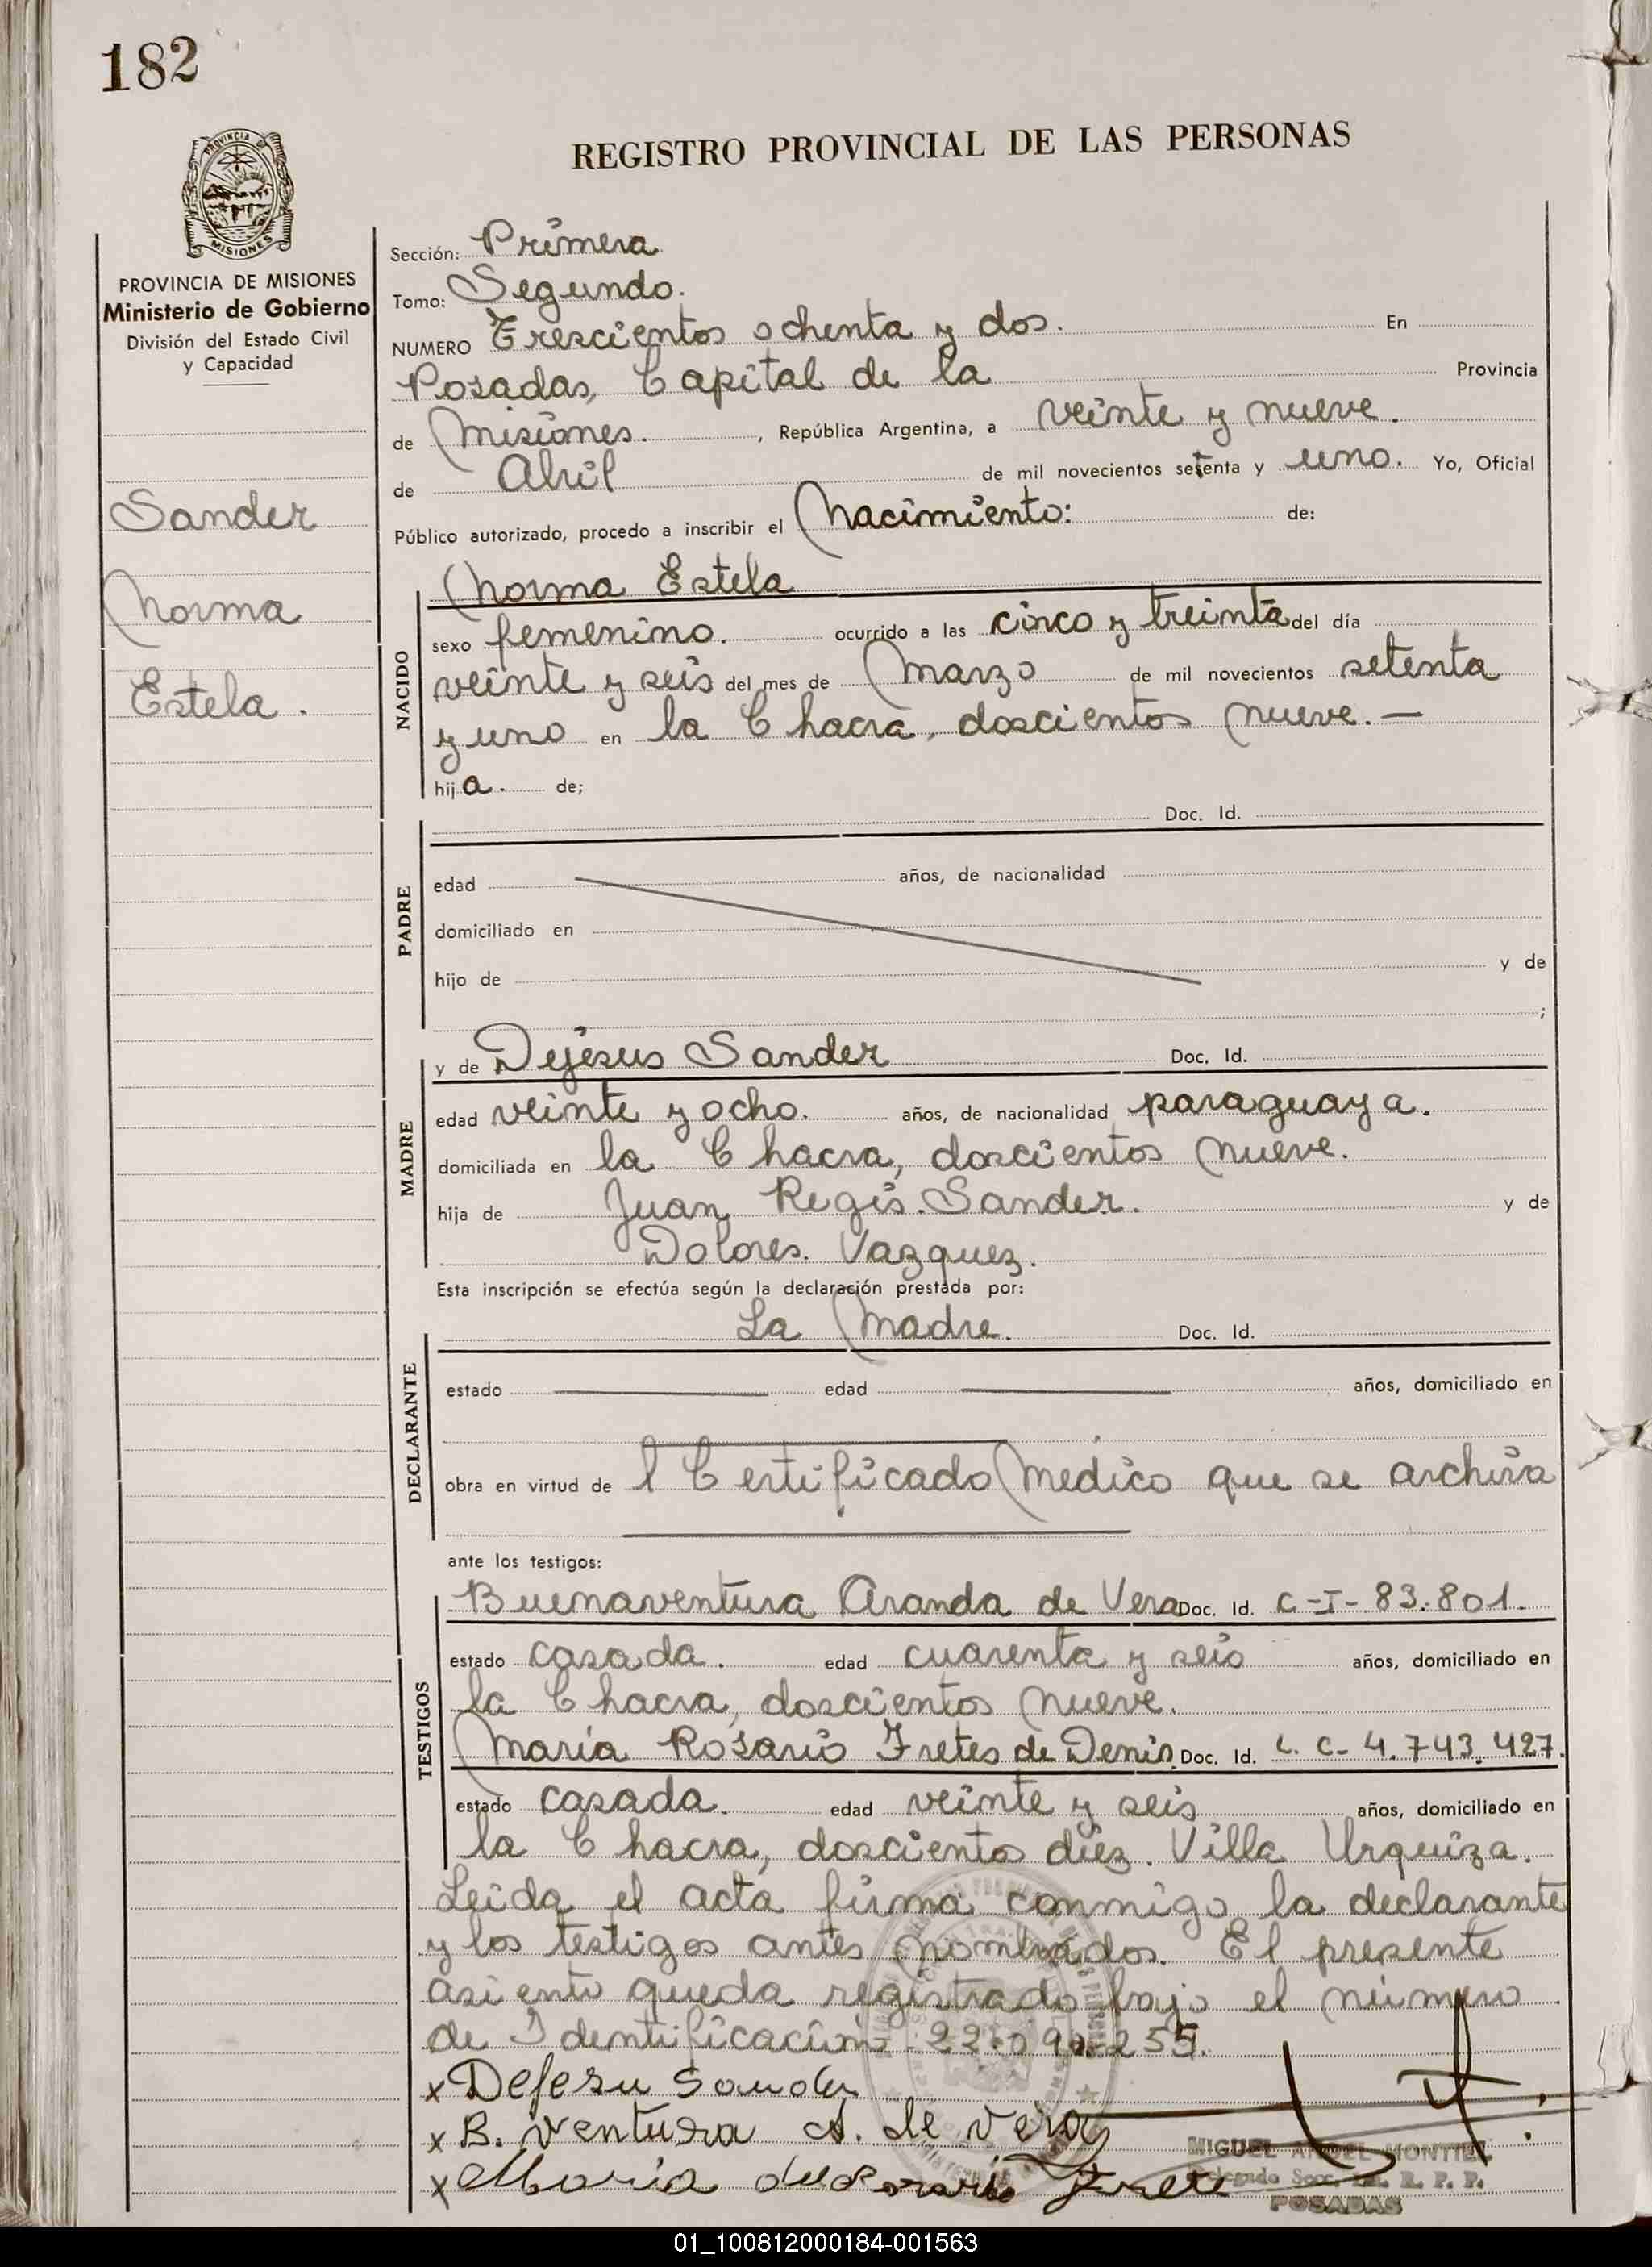 182
PROVINCIA DE
MISIONES
REGISTRO PROVINCIAL DE LAS PERSONAS
PROVINCIA DE MISIONES
Ministerio de Gobierno
División del Estado Civil
y Capacidad
Sander
Norma
Estela.
Sección: Primera
Tomo: Segundo.
NUMERO Trescientos ochenta y dos. En
Posadas, Capital de la Provincia
de Misiones. , República Argentina, a veinte y nueve.
de Abril de mil novecientos setenta y uno. Yo, Oficial
Público autorizado, procedo a inscribir el Nacimiento: de:
Norma Estela
NACIDO
sexo femenino. ocurrido a las cinco y treinta del día
veinte y seis del mes de Marzo de mil novecientos setenta
y uno en la Chacra, doscientos nueve. —
hija. de;
Doc. Id.
PADRE
edad años, de nacionalidad
domiciliado en
hijo de y de
;
y de Dejesus Sander Doc. Id.
MADRE
edad veinte y ocho. años, de nacionalidad paraguaya.
domiciliada en la Chacra, doscientos nueve.
hija de Juan Regis. Sander. y de
Dolores. Vazquez.
Esta inscripción se efectúa según la declaración prestada por:
La Madre. Doc. Id.
DECLARANTE
estado edad años, domiciliado en
obra en virtud de l Certificado Medico que se archiva
ante los testigos:
TESTIGOS
Buenaventura Aranda de Vera Doc. Id. C-I- 83.801.
estado casada. edad cuarenta y seis años, domiciliado en
la Chacra, doscientos nueve.
María Rosario Fretes de Denis. Doc. Id. L. C- 4.743.427.
estado casada. edad veinte y seis años, domiciliado en
la Chacra, doscientos diez. Villa Urquiza.
Leida el acta firma conmigo la declarante
y los testigos antes nombrados. El presente
asiento queda registrado bajo el número
de Identificacion
x Dejesu Sander
x B. ventura A. de vera
x Maria del Rosario Frete
MIGUEL ANGEL MONTIEL
Delegado Secc. R. P. P.
POSADAS
01_100812000184-001563